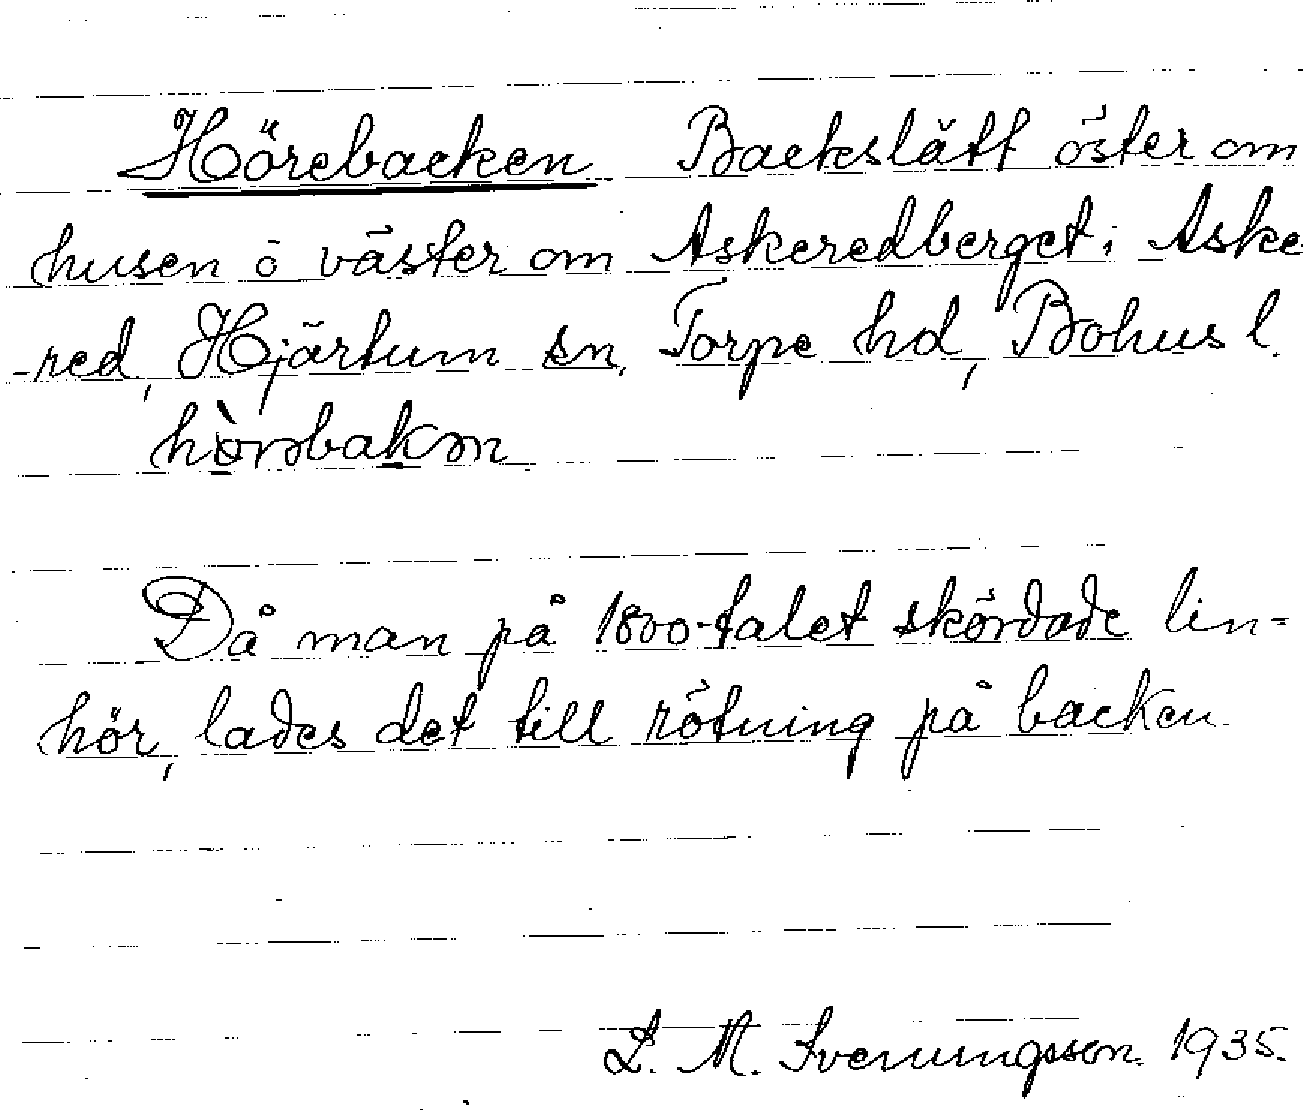 Hörebacken Backslätt öster om
husen o väster om Askeredberget i Aske
red, Hjärtum sn, Torpe hd, Bohus l.
Då man på 1800-talet skördade lin-
hör, lades det till rötning på backen.
L. M. Svenungsson. 1935.